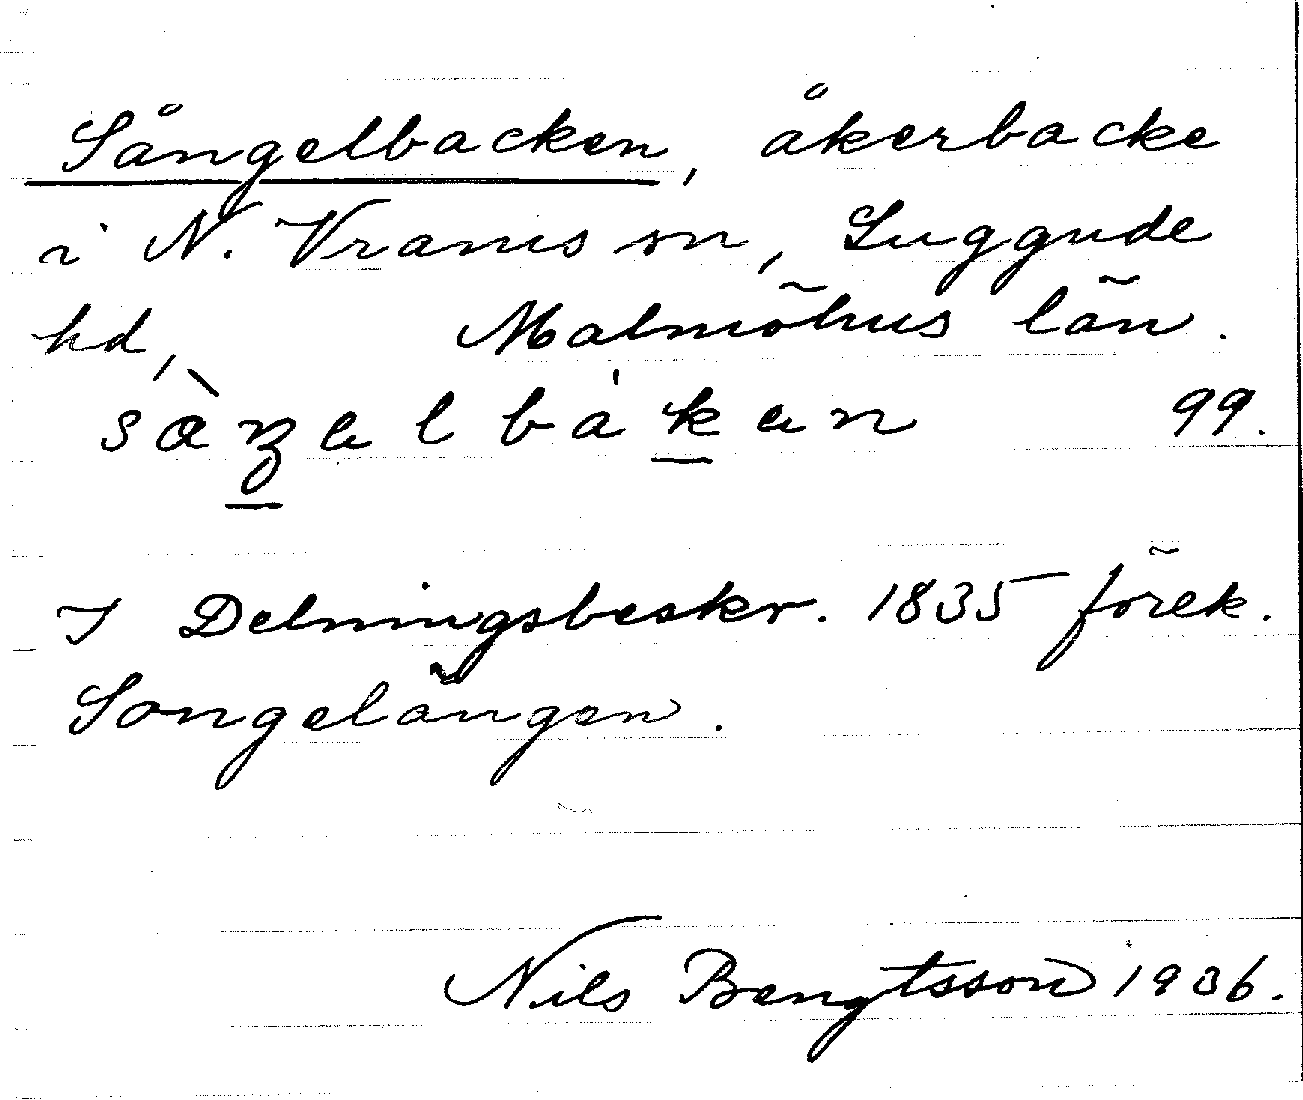 Sångelbacken, åkerbacke
i N. Vrams sn, Luggude
hd, Malmöhus län.
99.
I Delningsbeskr. 1835 förek.
Songelången.
Nils Bengtsson 1936.